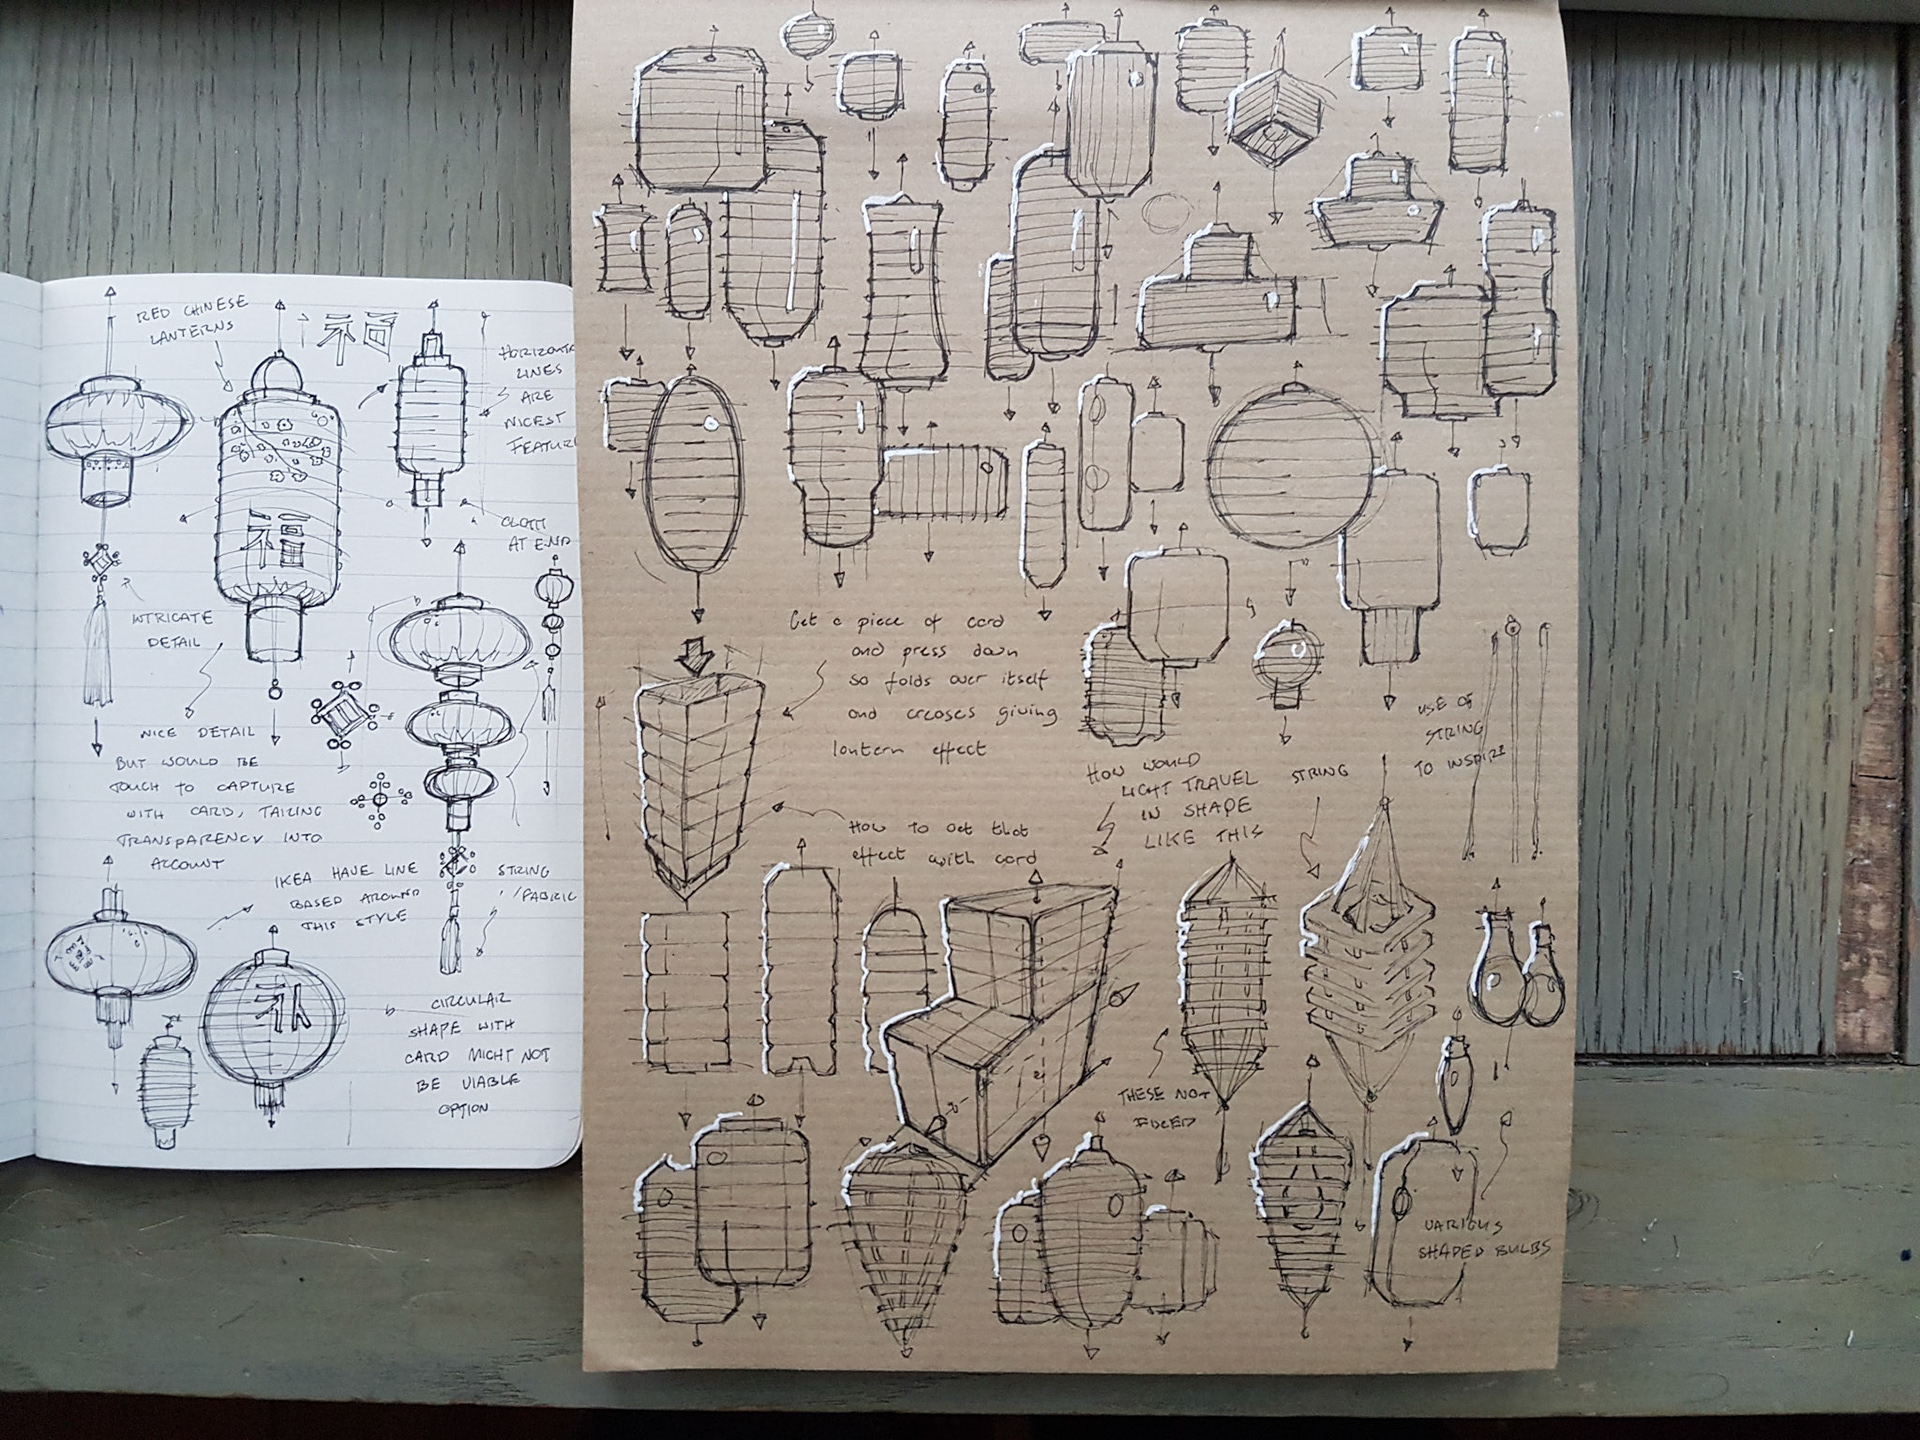 RED CHINESE
LANTERNS
福
HORIZONTA
LINES
ARE
NICEST
FEATUR
福
CLOTH
AT END
INTRICATE
DETAIL
NICE DETAIL
BUT WOULD BE
TOUCH TO CAPTURE
WITH CARD, TAKING
TRANSPARENCY INTO
ACCOUNT
IKEA HAVE LINE
BASED AROUND
THIS STYLE
STRING
/FABRIC
CIRCULAR
SHAPE WITH
CARD MIGHT NOT
BE VIABLE
OPTION
Get a piece of card
and press down
so folds over itself
and creases giving
lantern effect
How to get that
effect with card
HOW WOULD
LIGHT TRAVEL
IN SHAPE
LIKE THIS
STRING
USE OF
STRING
TO INSPIRE
THESE NOT
FIXED
VARIOUS
SHAPED BULBS